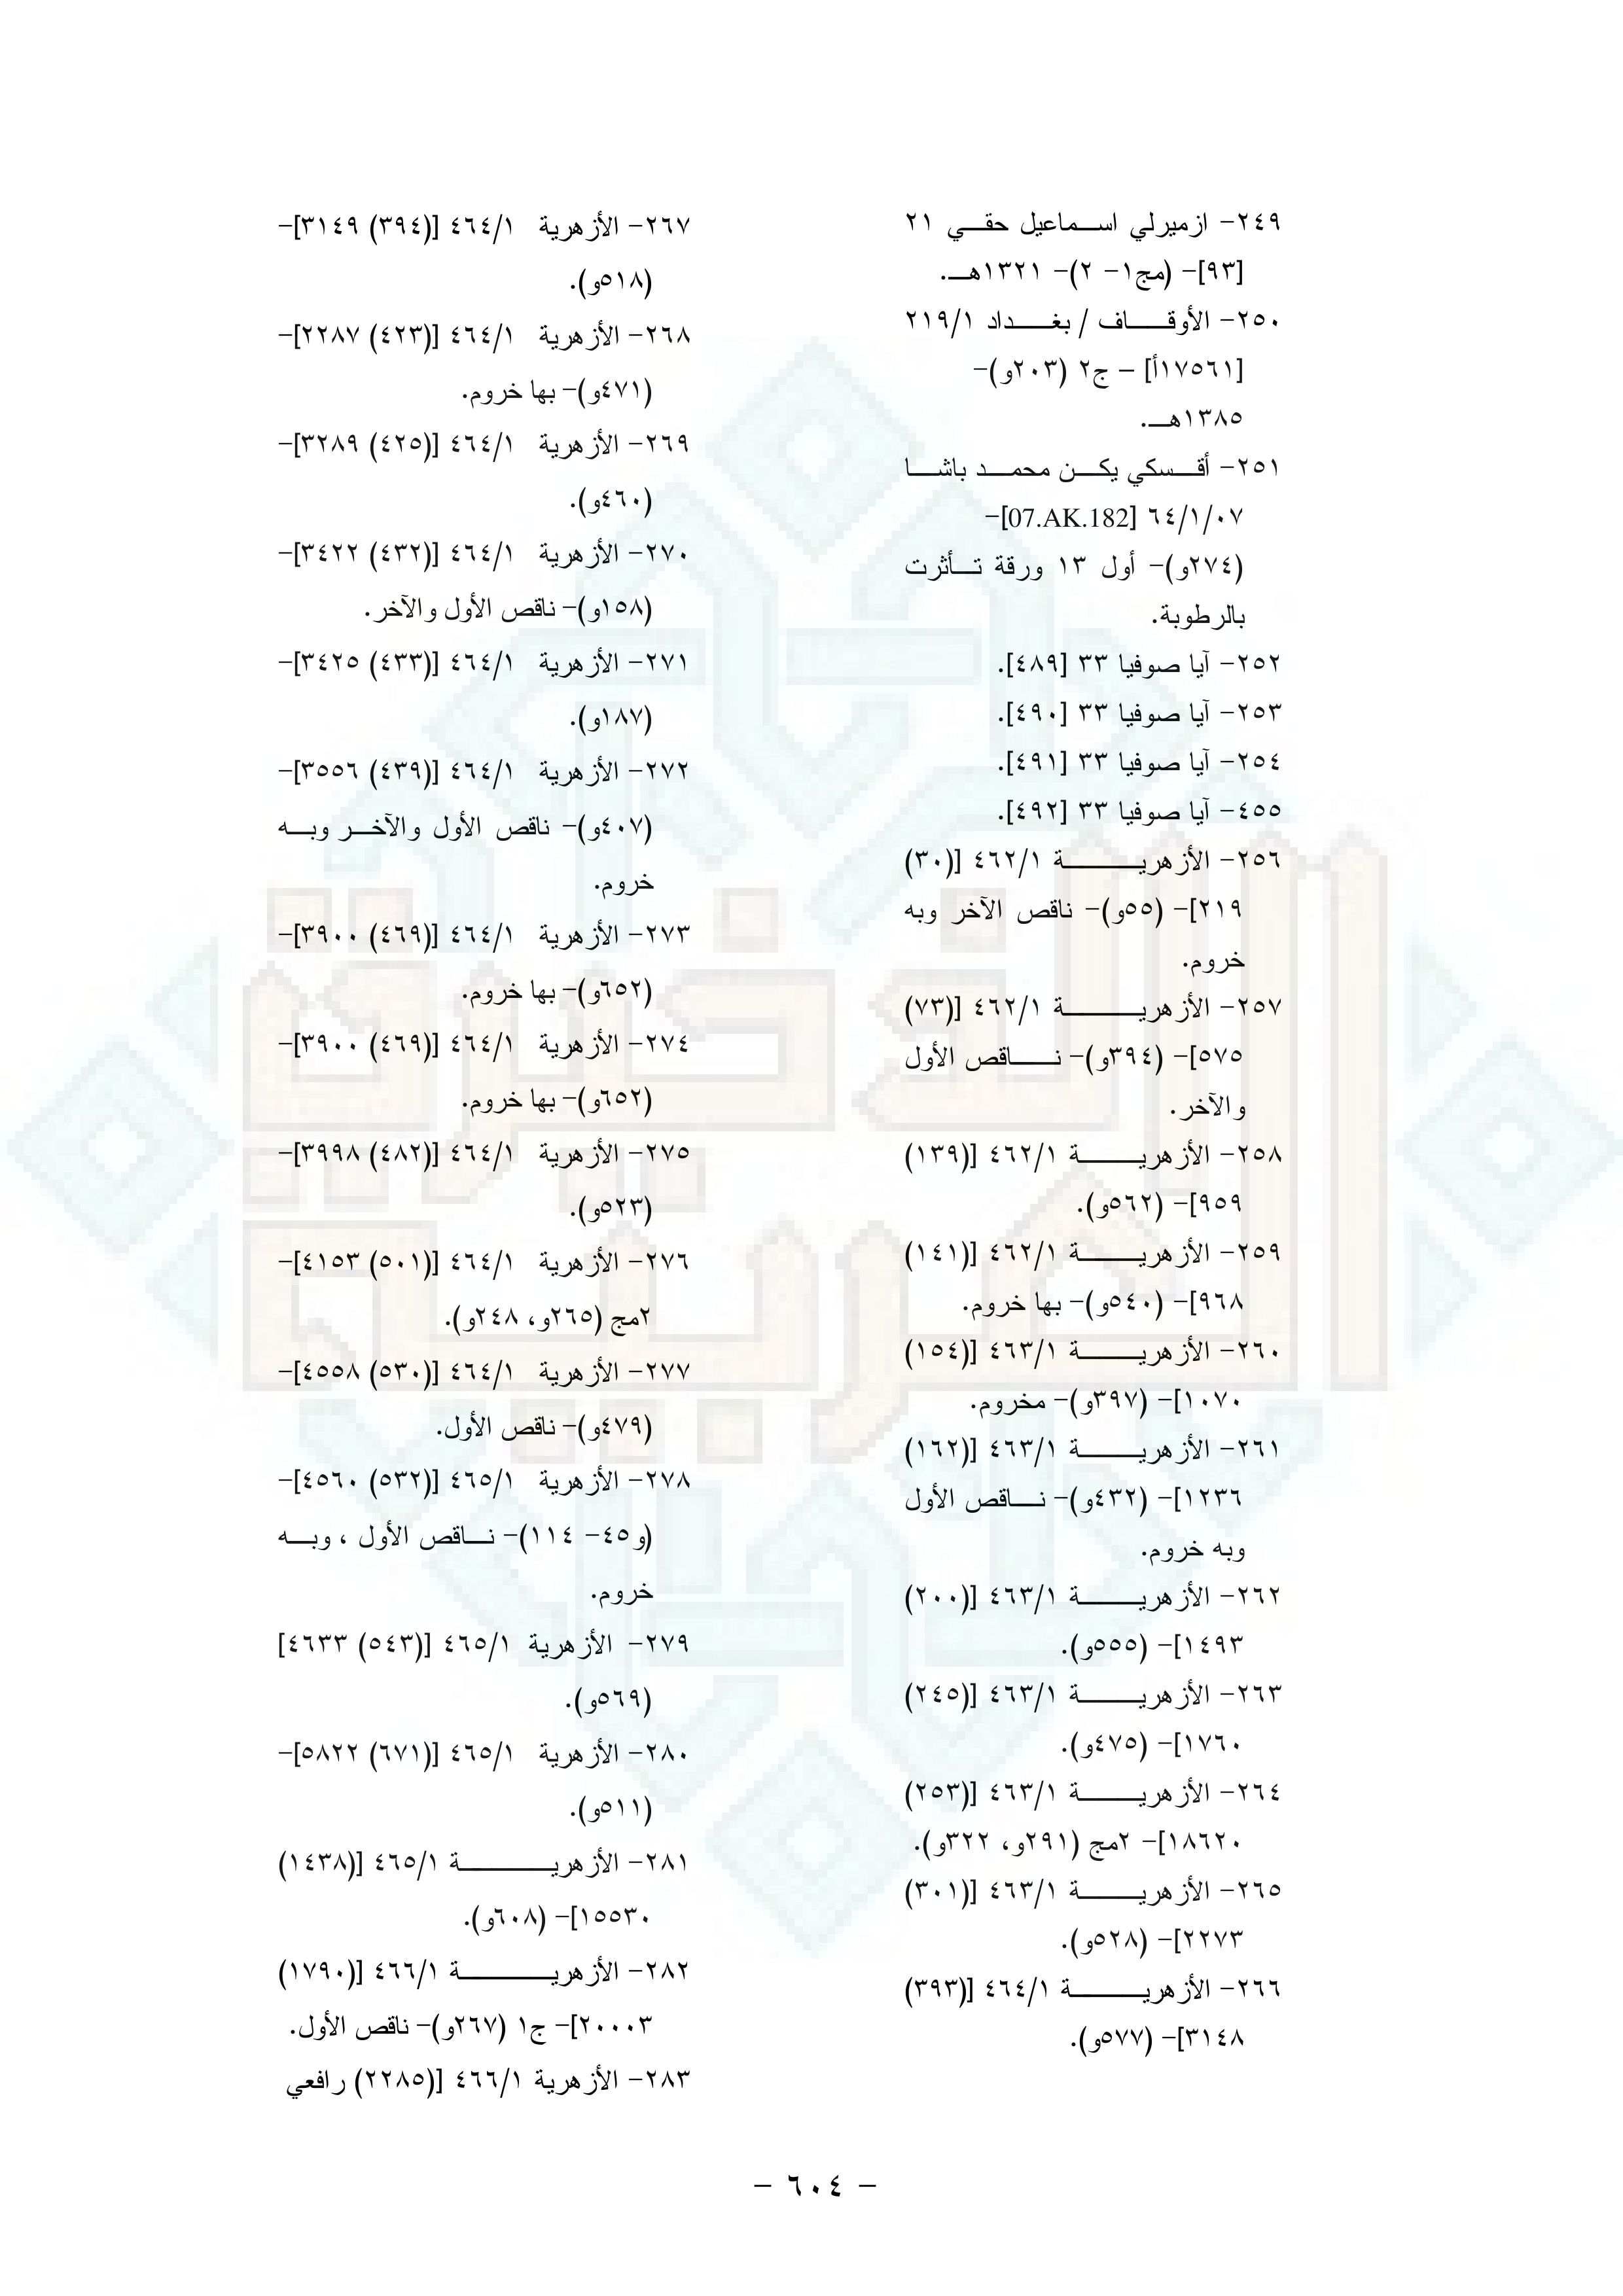 ٢٤٩- ازميرلي اسماعيل حقي ٢١
[٩٣]- (مج١- ٢)- ١٣٢١هـ.
٢٥٠- الأوقاف / بغداد ٢١٩/١
[١٧٥٦١أ] – ج٢ (٢٠٣و)-
١٣٨٥هـ.
٢٥١- أقسكي يكن محمد باشا
٦٤/١/٠٧ [07.AK.182]-
(٢٧٤و)- أول ١٣ ورقة تأثرت
بالرطوبة.
٢٥٢- آيا صوفيا ٣٣ [٤٨٩].
٢٥٣- آيا صوفيا ٣٣ [٤٩٠].
٢٥٤- آيا صوفيا ٣٣ [٤٩١].
٤٥٥- آيا صوفيا ٣٣ [٤٩٢].
٢٥٦- الأزهرية ٤٦٢/١ [(٣٠)
٢١٩]- (٥٥و)- ناقص الآخر وبه
خروم.
٢٥٧- الأزهرية ٤٦٢/١ [(٧٣)
٥٧٥]- (٣٩٤و)- ناقص الأول
والآخر.
٢٥٨- الأزهرية ٤٦٢/١ [(١٣٩)
٩٥٩]- (٥٦٢و).
٢٥٩- الأزهرية ٤٦٢/١ [(١٤١)
٩٦٨]- (٥٤٠و)- بها خروم.
٢٦٠- الأزهرية ٤٦٣/١ [(١٥٤)
١٠٧٠]- (٣٩٧و)- مخروم.
٢٦١- الأزهرية ٤٦٣/١ [(١٦٢)
١٢٣٦]- (٤٣٢و)- ناقص الأول
وبه خروم.
٢٦٢- الأزهرية ٤٦٣/١ [(٢٠٠)
١٤٩٣]- (٥٥٥و).
٢٦٣- الأزهرية ٤٦٣/١ [(٢٤٥)
١٧٦٠]- (٤٧٥و).
٢٦٤- الأزهرية ٤٦٣/١ [(٢٥٣)
١٨٦٢٠]- ٢مج (٢٩١و، ٣٢٢و).
٢٦٥- الأزهرية ٤٦٣/١ [(٣٠١)
٢٢٧٣]- (٥٢٨و).
٢٦٦- الأزهرية ٤٦٤/١ [(٣٩٣)
٣١٤٨]- (٥٧٧و).
٢٦٧- الأزهرية ٤٦٤/١ [(٣٩٤) ٣١٤٩]-
(٥١٨و).
٢٦٨- الأزهرية ٤٦٤/١ [(٤٢٣) ٢٢٨٧]-
(٤٧١و)- بها خروم.
٢٦٩- الأزهرية ٤٦٤/١ [(٤٢٥) ٣٢٨٩]-
(٤٦٠و).
٢٧٠- الأزهرية ٤٦٤/١ [(٤٣٢) ٣٤٢٢]-
(١٥٨و)- ناقص الأول والآخر.
٢٧١- الأزهرية ٤٦٤/١ [(٤٣٣) ٣٤٢٥]-
(١٨٧و).
٢٧٢- الأزهرية ٤٦٤/١ [(٤٣٩) ٣٥٥٦]-
(٤٠٧و)- ناقص الأول والآخر وبه
خروم.
٢٧٣- الأزهرية ٤٦٤/١ [(٤٦٩) ٣٩٠٠]-
(٦٥٢و)- بها خروم.
٢٧٤- الأزهرية ٤٦٤/١ [(٤٦٩) ٣٩٠٠]-
(٦٥٢و)- بها خروم.
٢٧٥- الأزهرية ٤٦٤/١ [(٤٨٢) ٣٩٩٨]-
(٥٢٣و).
٢٧٦- الأزهرية ٤٦٤/١ [(٥٠١) ٤١٥٣]-
٢مج (٢٦٥و، ٢٤٨و).
٢٧٧- الأزهرية ٤٦٤/١ [(٥٣٠) ٤٥٥٨]-
(٤٧٩و)- ناقص الأول.
٢٧٨- الأزهرية ٤٦٥/١ [(٥٣٢) ٤٥٦٠]-
(و٤٥- ١١٤)- ناقص الأول ، وبه
خروم.
٢٧٩- الأزهرية ٤٦٥/١ [(٥٤٣) ٤٦٣٣]
(٥٦٩و).
٢٨٠- الأزهرية ٤٦٥/١ [(٦٧١) ٥٨٢٢]-
(٥١١و).
٢٨١- الأزهرية ٤٦٥/١ [(١٤٣٨)
١٥٥٣٠]- (٦٠٨و).
٢٨٢- الأزهرية ٤٦٦/١ [(١٧٩٠)
٢٠٠٠٣]- ج١ (٢٦٧و)- ناقص الأول.
٢٨٣- الأزهرية ٤٦٦/١ [(٢٢٨٥) رافعي
- ٦٠٤ -